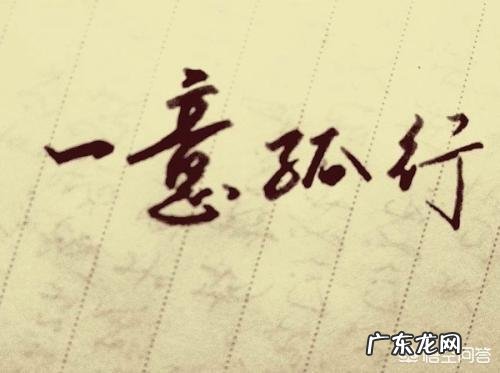 一意孤行
广东龙网
悟空问答